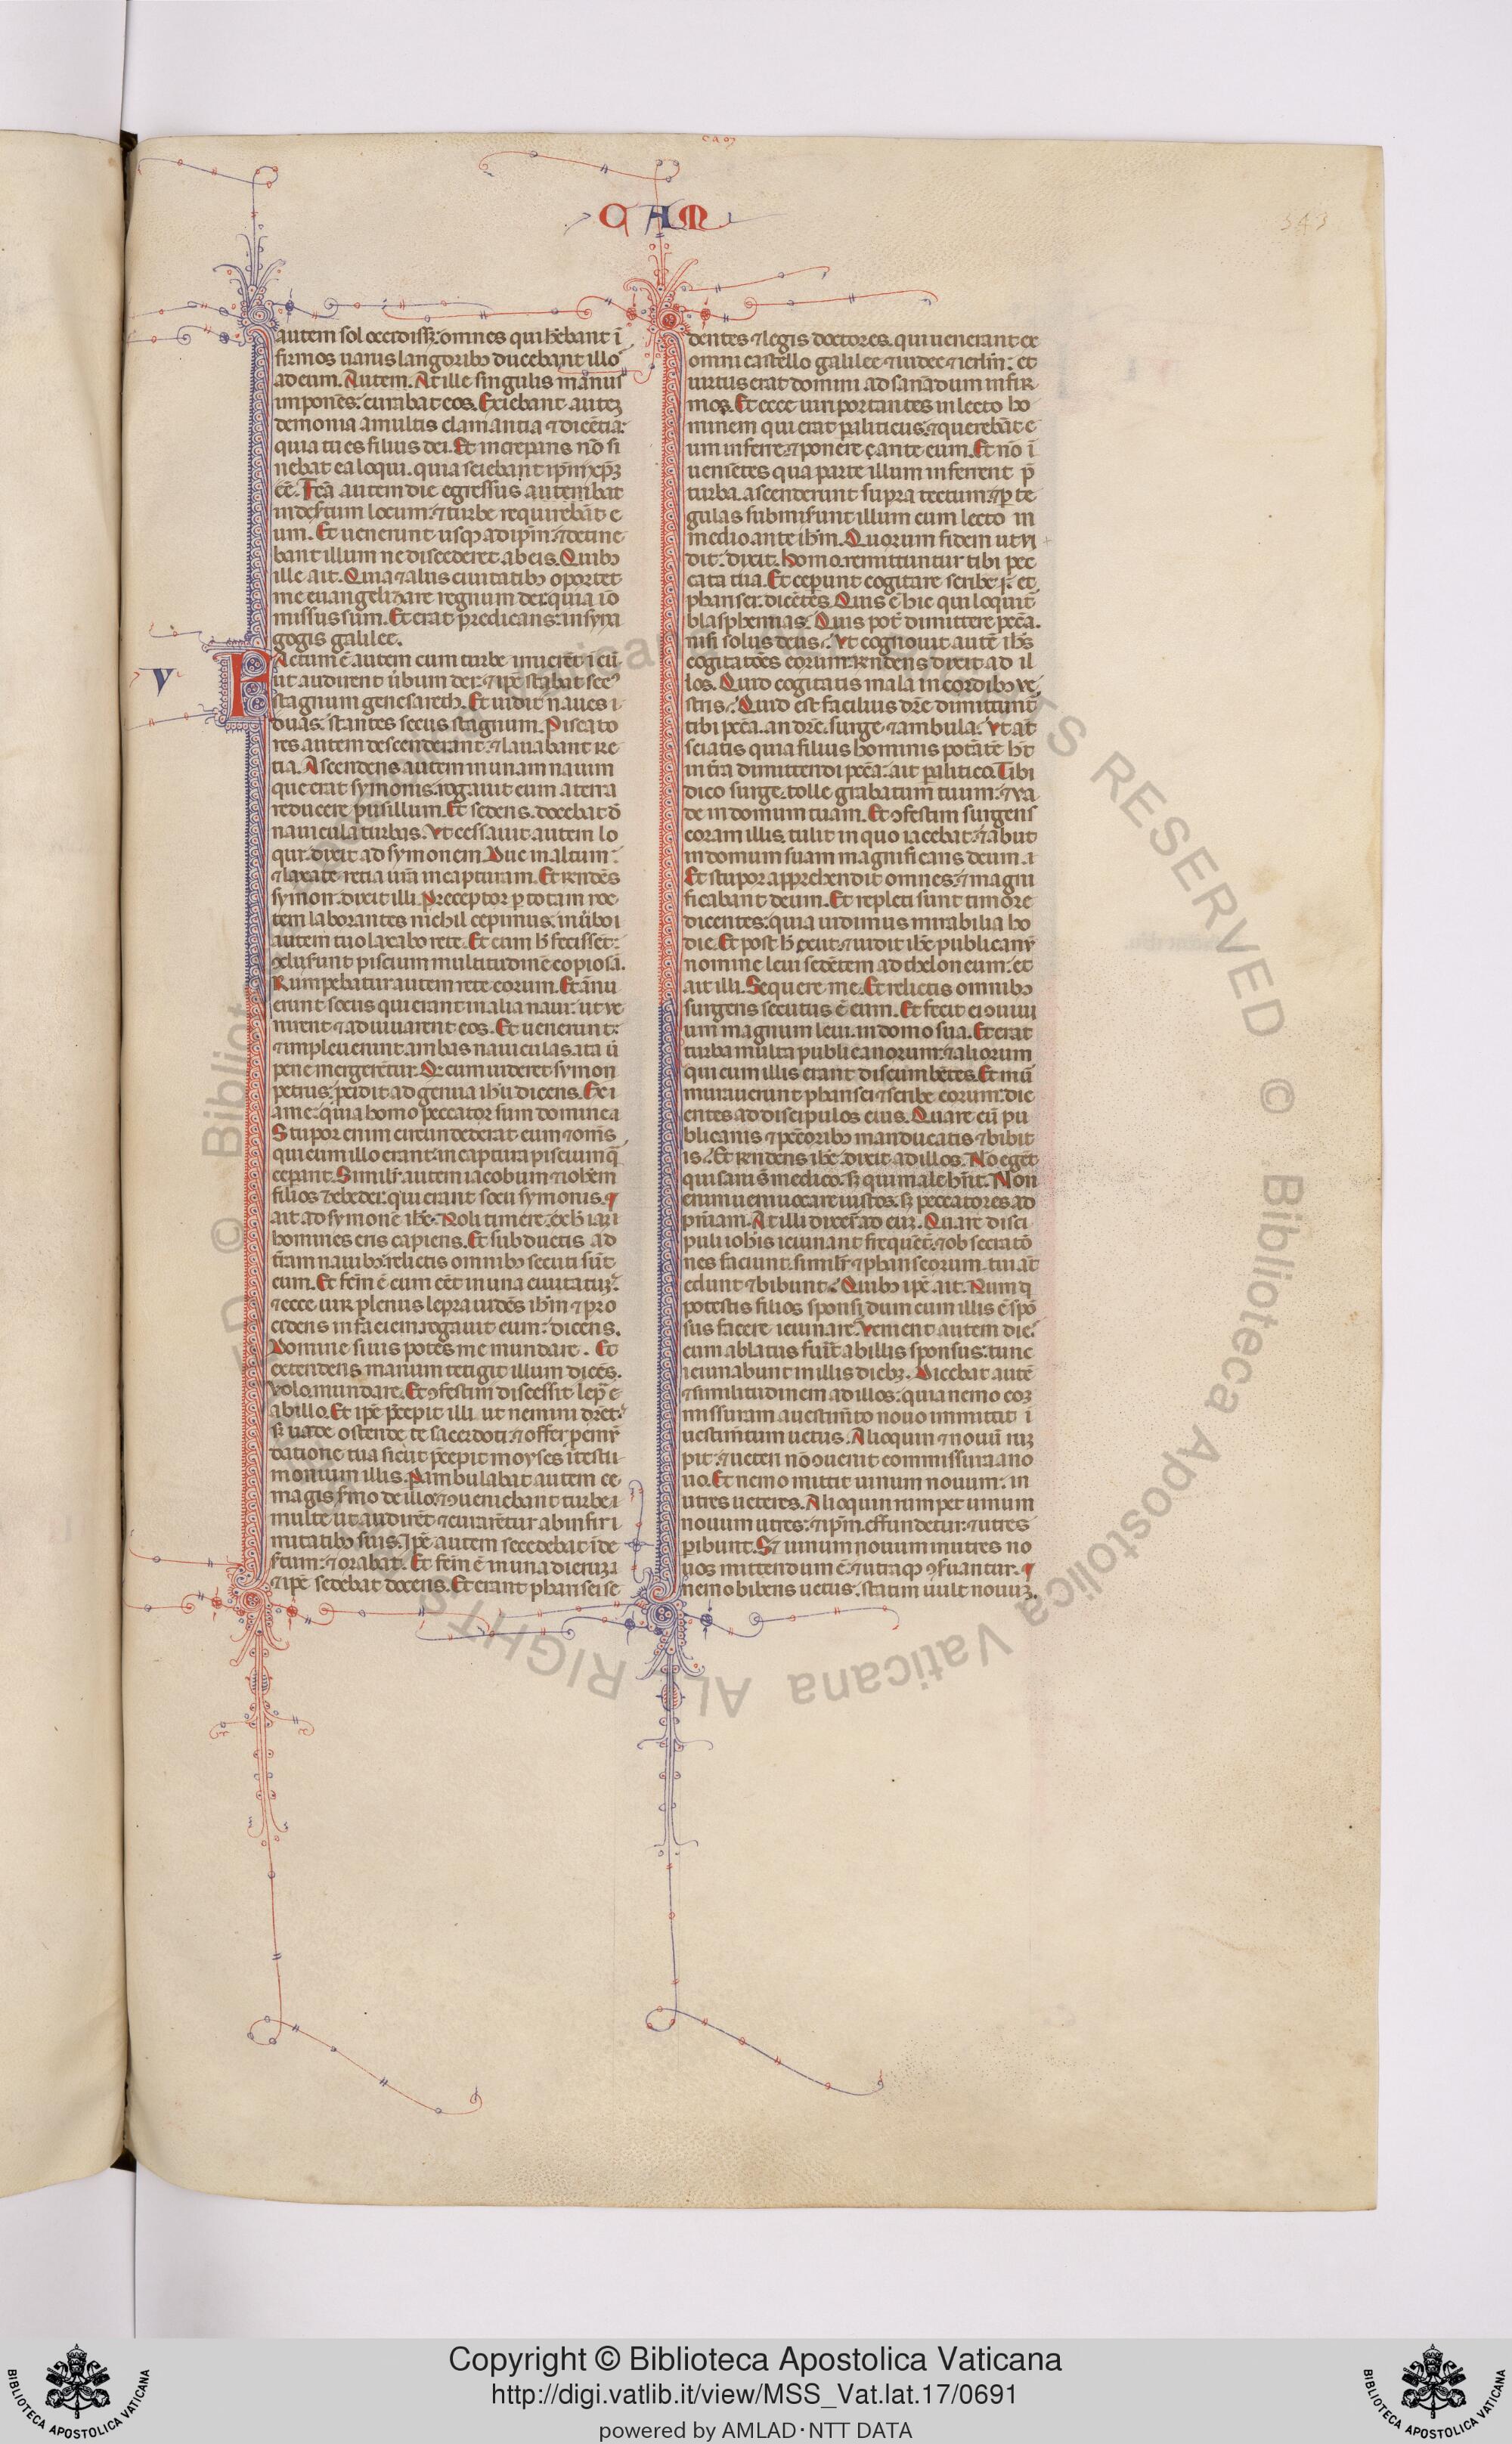 CAM
343
autem sol occidisset: omnes qui hēbant ī
firmos uariis langoribꝰ ducebant illoˢ
ad eum. Autem. At ille singulis manus
imponēs: curabat eos. Exiebant auteꝫ
demonia a multis clamantia ⁊ dicētia:
quia tu es filius dei. Et increpans nō si
nebat ea loqui. quia sciebant ip̄m xp̄ꝫ
eē. Fcā autem die egressus autem ibat
in desertum locum: ⁊ turbe requirebāt e
um. Et uenerunt usqꝫ ad ip̄m: ⁊ detine
bant illum ne discederet ab eis. Quibꝰ
ille ait. Quia ⁊ aliis ciuitatibꝰ oportet
me euangelizare regnum dei: quia iō
missus sum. Et erat predicans: in syna
gogis galilee.
V
FActum ē autem cum turbe irruerēt ī eū:
ut audirent ūbum dei: ⁊ ip̄e stabat secˢ
stagnum genesareth. Et uidit naues i
duas. stantes secus stagnum. Piscato
res autem descenderant: ⁊ lauabant re
tia. Ascendens autem in unam nauim
que erat symonis. rogauit eum a terra
reducere pusillum. Et sedens. docebat d̄
nauicula turbas. Vt cessauit autem lo
qui: dixit ad symonem. Duc in altum:
⁊ laxate retia ur̄a in capturam. Et rendēs
symon: dixit illi. Preceptor ꝑ totam noc
tem laborantes nichil cepimus: in ūbo i
autem tuo laxabo rete. Et cum h̄ fecissēt:
ↄclusunt piscium multitudinē copiosā.
Rumpebatur autem rete eorum. Et ānu
erunt sociis qui erant in alia naui: ut ue
nirent ⁊ adiuuarent eos. Et uenerunt:
⁊ impleuerunt ambas nauiculas. ita ū
pene mergerētur. Q: cum uideret symon
petrus: ꝓcidit ad genua ih̄u dicens. Exi
a me: quia homo peccator sum domine a
Stupor enim circundederat eum ⁊ om̄s
qui cum illo erant: in captura piscium q̄
ceperant. Similr̄ autem iacobum ⁊ ioh̄em
filios zebedei: qui erant socii symonis. ⁊
ait ad symonē ih̄c. Noli timere: ex h̄ iā ri
homines eris capiens. Et subductis ad
tr̄am nauibꝰ: relictis omnibꝰ secuti sūt
eum. Et fc̄m ē cum eēt in una ciuitatuꝫ:
⁊ ecce uir plenus lepra uidēs ih̄m ⁊ pro
cidens in faciem: rogauit eum: dicens.
Domine si uis potes me mundare. Et
extendens manum tetigit illum dicēs.
Volo. mundare. Et ↄfestim discessit lep̄ e
ab illo. Et ip̄e p̄cepit illi ut nemini dr̄et:
sꝫ uade ostende te sacerdoti: ⁊ offer ꝓ emū
datione tua sicut p̄cepit moyses ī testi
monium illis. Pambulabat autem ce
magis ẜmo de illo: ⁊ ↄueniebant turbe i
multe ut audirēt ⁊ curarētur ab infir i
mitatibꝰ suis. Ip̄e autem secedebat ī de
sertum: ⁊ orabat. Et fc̄m ē in una dieruꝫ:
⁊ ip̄e sedebat docens. Et erant pharisei se
dentes ⁊ legis doctores. qui uenerant ex
omni castello galilee ⁊ iudee ⁊ ierlm̄: et
uirtus erat domini ad sanādum infir
mos. Et ecce uiri portantes in lecto ho
minem qui erat paliticus: ⁊ querebāt e
um inferre: ⁊ ponere ante eum. Et nō ī
uenietes qua parte illum inferrent p̄
turba. ascenderunt supra tectum: ⁊ ꝑ te
gulas submisunt illum cum lecto in
medio ante ih̄m. Quorum fidem ut ui
dit: dixit. Homo remittuntur tibi pec
cata tua. Et ceperunt cogitare scribe i: et
pharisei: dicētes. Quis ē hic qui loquit̄
blasphemias? Quis pot̄ dimittere pec̄a.
nisi solus deus? Vt cognouit autē ih̄s
cogitatōes eorum: rendens dixit ad il
los. Quid cogitatis mala in cordibꝰ ue
stris? Quid est facilius dr̄e dimittunt̄
tibi pec̄a. an dr̄e. surge ⁊ ambula? Vt āt
sciatis quia filius hominis potātē h̄t
in tr̄a dimittendi pec̄a: ait palitico. Tibi
dico surge. tolle grabatum tuum: ⁊ ua
de in domum tuam. Et ↄfestim surgens
coram illis. tulit in quo iacebat: ⁊ abiit
in domum suam magnificans deum. i
Et stupor apprehendit omnes: ⁊ magni
ficabant deum. Et repleti sunt timore
dicentes: quia uidimus mirabilia ho
die. Et post h̄ exiit: ⁊ uidit ih̄c publicanū
nomine leui sedētem ad theloneum: et
ait illi. Sequere me. Et relictis omnibꝰ
surgens secutus ē eum. Et fecit ei ↄuiui
um magnum leui. in domo sua. Et erat
turba multa publicanorum: ⁊ aliorum
qui cum illis erant discumbētes. Et mū
murauerunt pharisei ⁊ scribe eorum: dic
entes ad discipulos eius. Quare cū pu
blicanis ⁊ pec̄oribꝰ manducatis ⁊ bibit
is? Et rendens ih̄c: dixit ad illos. Nō egēt
qui sani s̄t medico. sꝫ qui male hn̄t. Non
enim ueni uocare iustos. sꝫ peccatores ad
pn̄iam. At illi dixer̄t ad eū. Quare disci
puli ioh̄is ieiunant frequēt: ⁊ obsecratō
nes faciunt. similr̄ ⁊ phariseorum. tui āt
edunt ⁊ bibunt? Quibꝰ ip̄e ait. Numq̄
potestis filios sponsi dum cum illis ē spō
sus facere ieiunare? Venient autem dieˢ
cum ablatus fuīt ab illis sponsus: tunc
ieiunabunt in illis diebꝫ. Dicebat autē
⁊ similitudinem ad illos: quia nemo com̄
missuram a uestimn̄to nouo immittit i
uestimn̄tum uetus. Alioquin ⁊ nouū rū
pit: ⁊ ueteri nō ↄuenit commissura a no
uo. Et nemo mittit uinum nouum: in
utres ueteres. Alioquin rumpet uinum
nouum utres: ⁊ ip̄m effundetur: ⁊ utres
ꝑibunt. Sꝫ uinum nouum in utres no
uos mittendum ē: ⁊ utraqꝫ ↄẜuantur. ⁊
nemo bibens uetus: statim uult nouuꝫ.
Copyright © Biblioteca Apostolica Vaticana
http://digi.vatlib.it/view/MSS_Vat.lat.17/0691
powered by AMLAD·NTT DATA
BIBLIOTECA APOSTOLICA VATICANA
BIBLIOTECA APOSTOLICA VATICANA